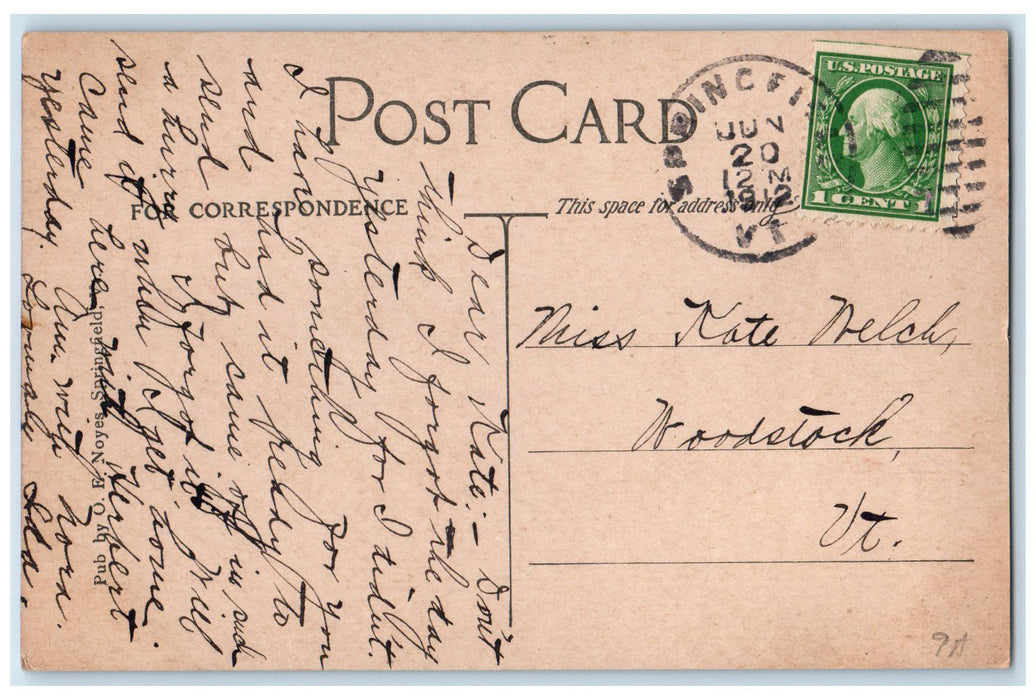 POST CARD
FOR CORRESPONDENCE
This space for address only
SPRINGFIELD
JUN
20
12 M
1912
VT.
U.S. POSTAGE
1 CENT 1
Miss Kate Welch,
Woodstock,
Vt.
Dear Kate:- Don't
think I forgot the day
yesterday for I didn't.
I have something for you
and had it ready to
send but came off in such
a hurry I forgot it. Will
send it when I get home.
Came here with Herbert
yesterday. Am with Nora.
Lovingly Ida.
Pub by O. E. Noyes Springfield,
9A